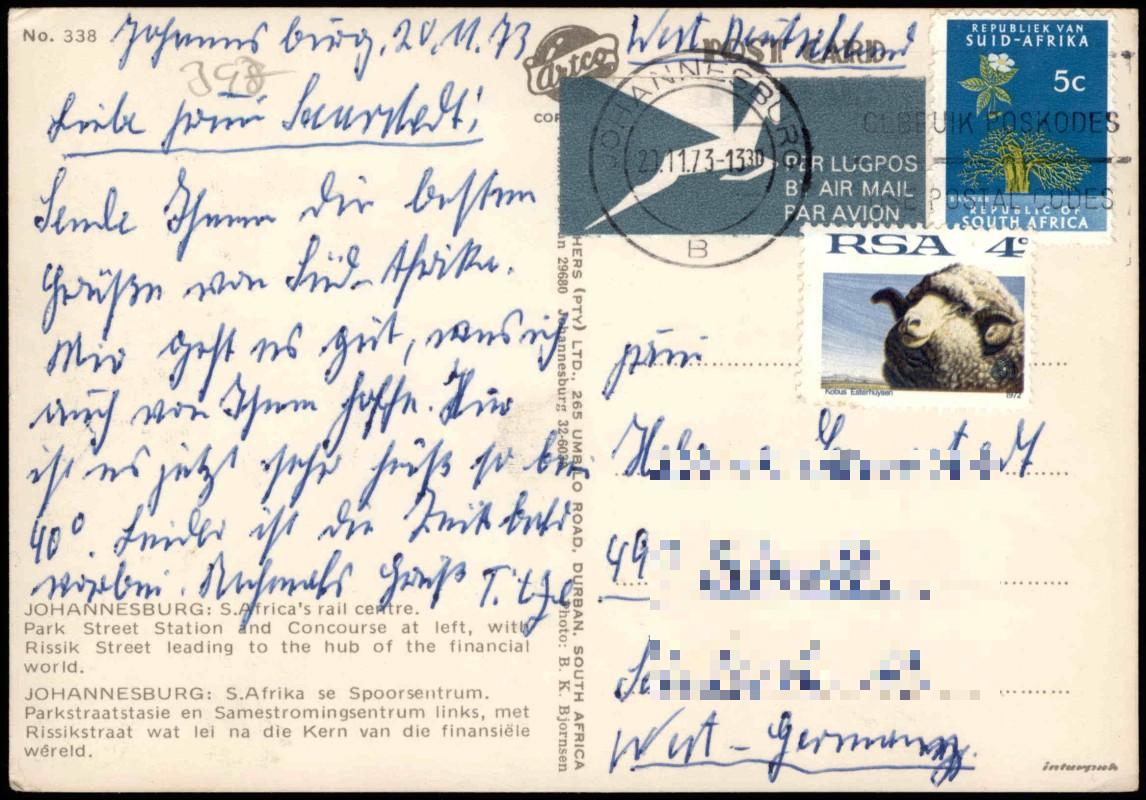 No. 338
Johannesburg, 20.11.73
348
Liebe Frau Sauerstedt!
Sende Ihnen die besten
Grüße von Süd-Afrika.
Mir geht es gut, was ich
auch von Ihnen hoffe. Hier
ist es jetzt sehr heiß so bei
40°. Leider ist die Zeit bald
vorbei. Nochmals Gruß T.
JOHANNESBURG: S.Africa's rail centre.
Park Street Station and Concourse at left, with
Rissik Street leading to the hub of the financial
world.
JOHANNESBURG: S.Afrika se Spoorsentrum.
Parkstraatstasie en Samestromingsentrum links, met
Rissikstraat wat lei na die Kern van die finansiële
wéreld.
Artco
HERS (PTY) LTD., 265 UMBILO ROAD, DURBAN, SOUTH AFRICA
29680 Johannesburg
Photo: B. K. Bjornsen
West Deutschland
POST CARD
JOHANNESBURG
20.11.73-1330
B
PER LUGPOS
BY AIR MAIL
PAR AVION
REPUBLIEK VAN
SUID-AFRIKA
5c
REPUBLIC OF
SOUTH AFRICA
GEBRUIK POSKODES
USE POSTAL CODES
RSA 4c
Kobus Esterhuysen
1972
Frau
49
West-Germany.
interpak